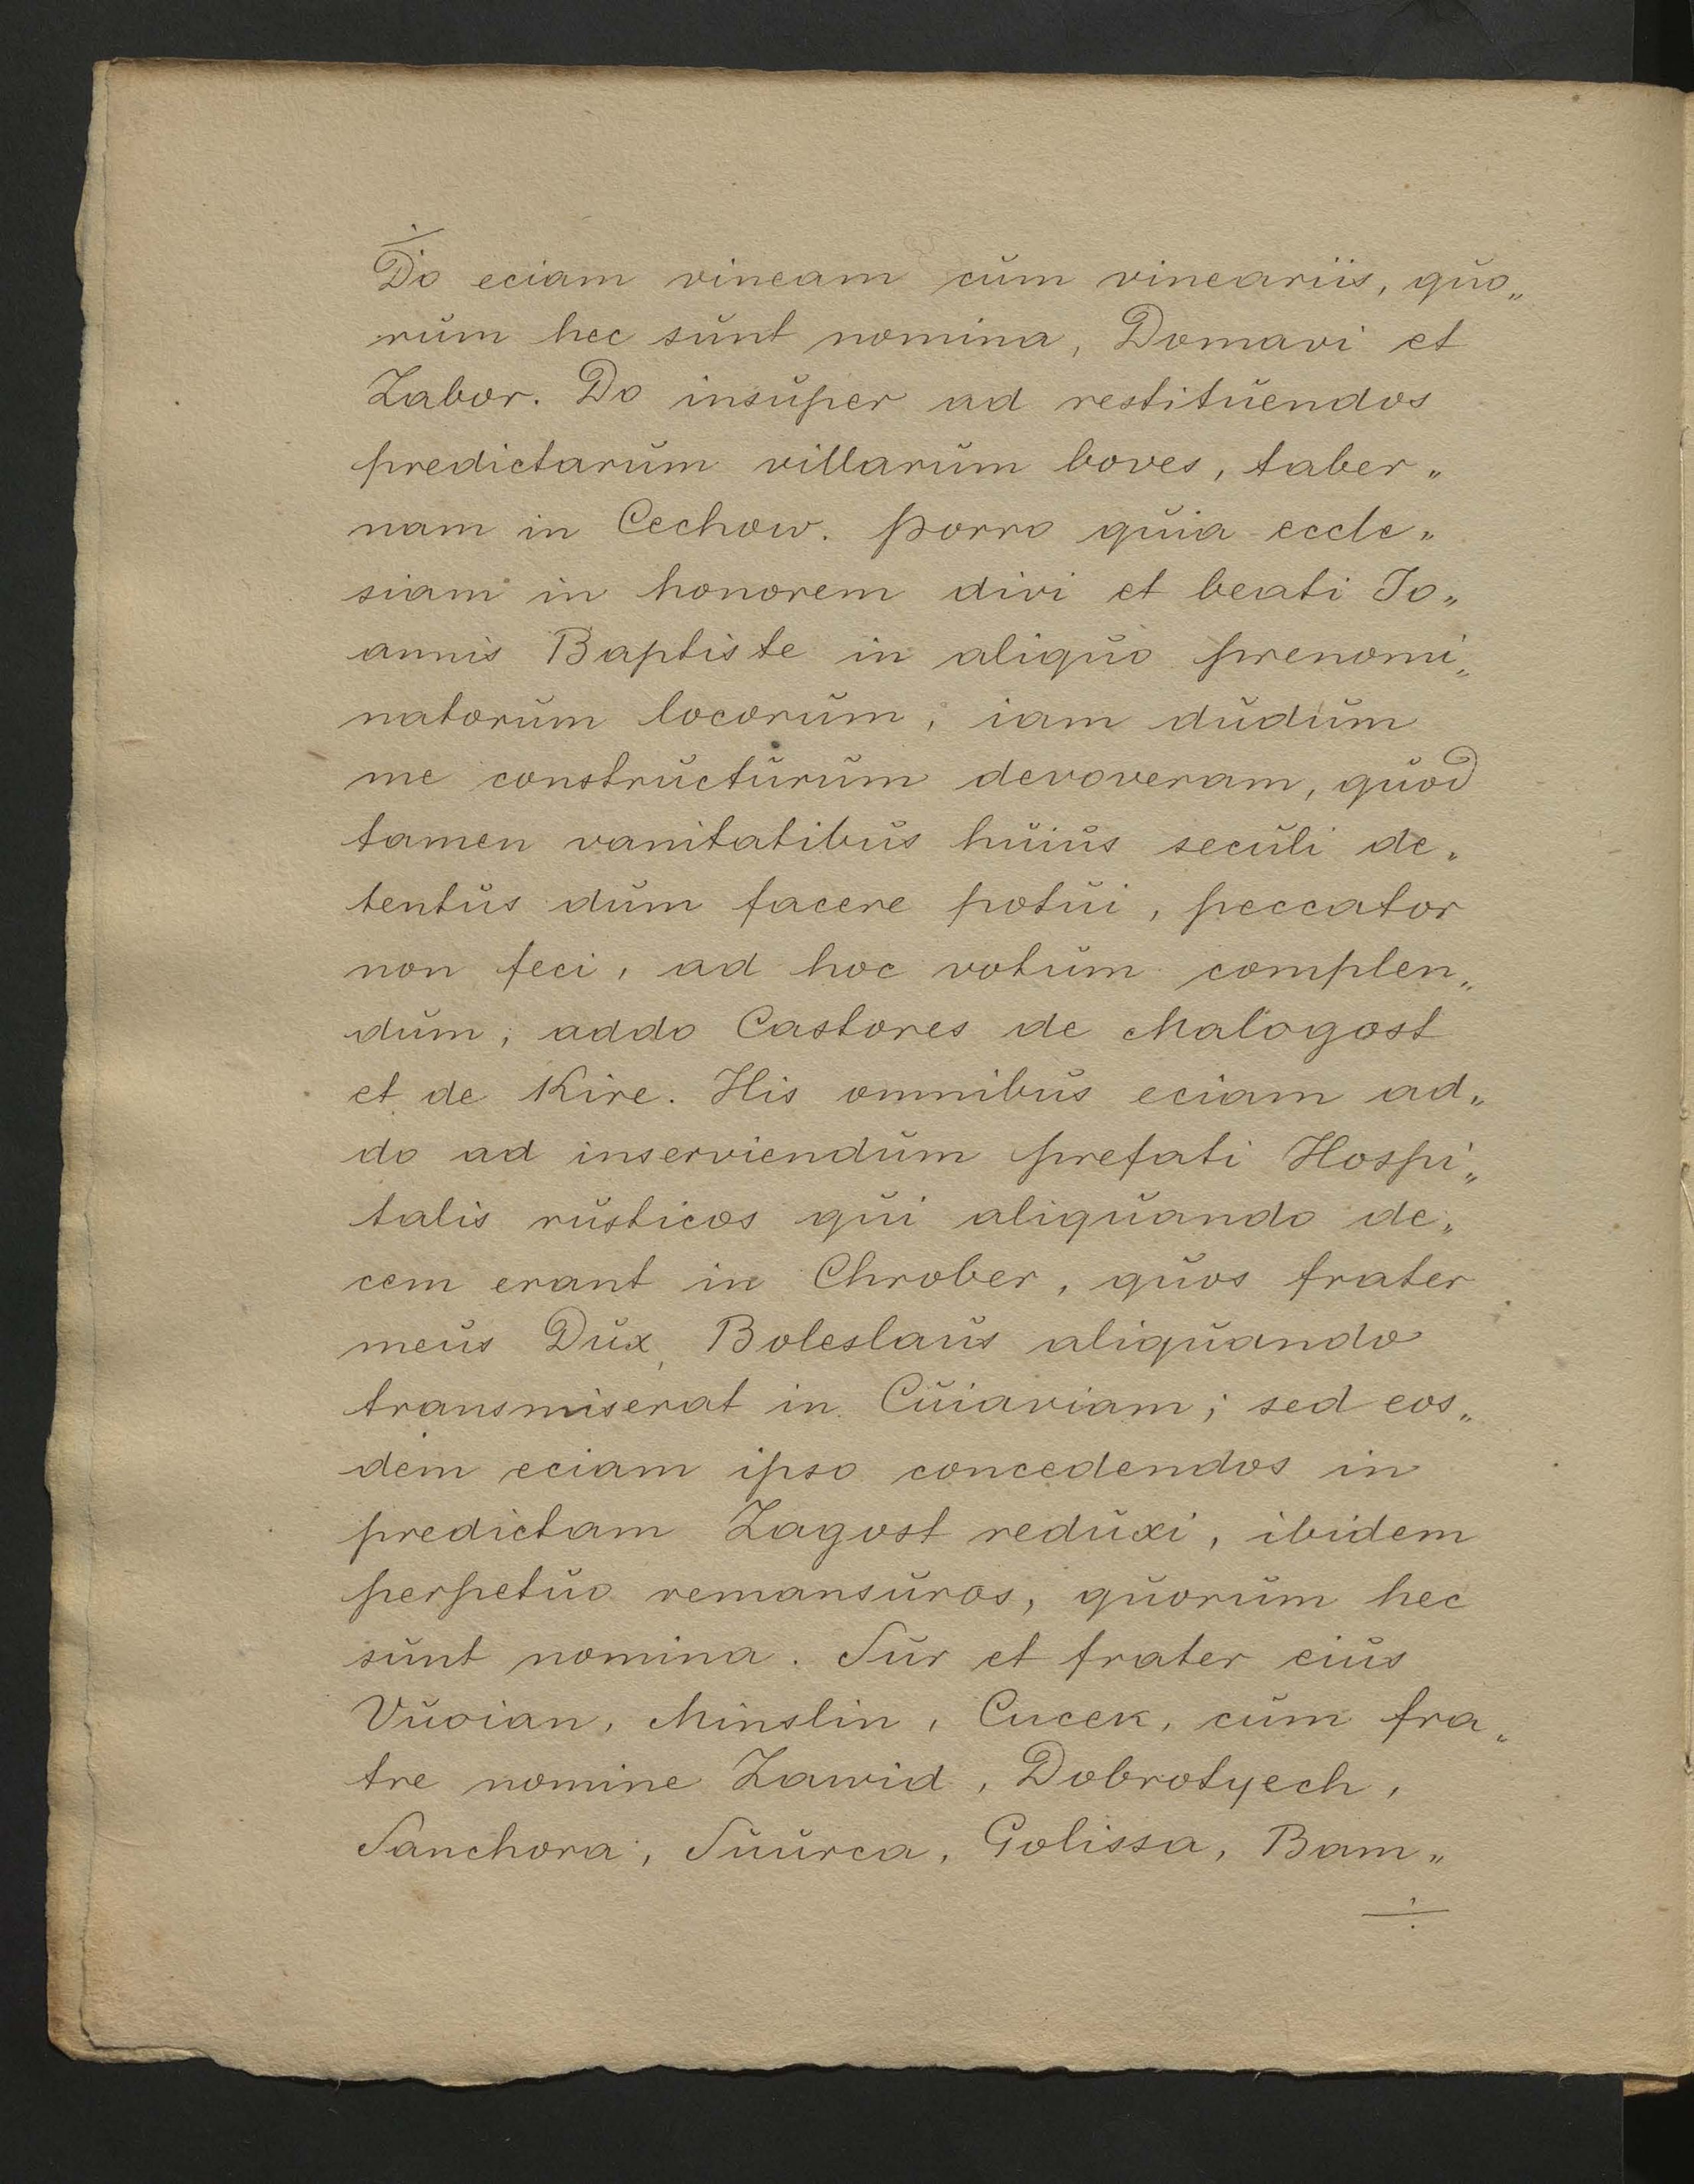 Do eciam vineam cum vineariis, quo„
rum hec sunt nomina, Domavi et
Zabor. Do insuper ad restituendos
predictarum villarum boves, taber„
nam in Cechow. Porro quia eccle„
siam in honorem divi et beati Jo„
annis Baptiste in aliquo prenomi„
natorum locorum, iam dudum
me constructurum devoveram, quod
tamen vanitatibus huius seculi de„
tentus dum facere potui, peccator
non feci, ad hoc votum complen„
dum, addo Castores de Malogost
et de Kire. His omnibus eciam ad„
do ad inserviendum prefati Hospi„
talis rusticos qui aliquando de„
cem erant in Chrober, quos frater
meus Dux, Boleslaus aliquando
transmiserat in Cuiaviam; sed eos„
dem eciam ipso concedendos in
predictam Zagost reduxi, ibidem
perpetuo remansuros, quorum hec
sunt nomina. Sur et frater eius
Vuoian, Minslin, Cucek, cum fra„
tre nomine Zawid, Dobrotyech,
Sanchora, Suurca, Golissa, Bam„